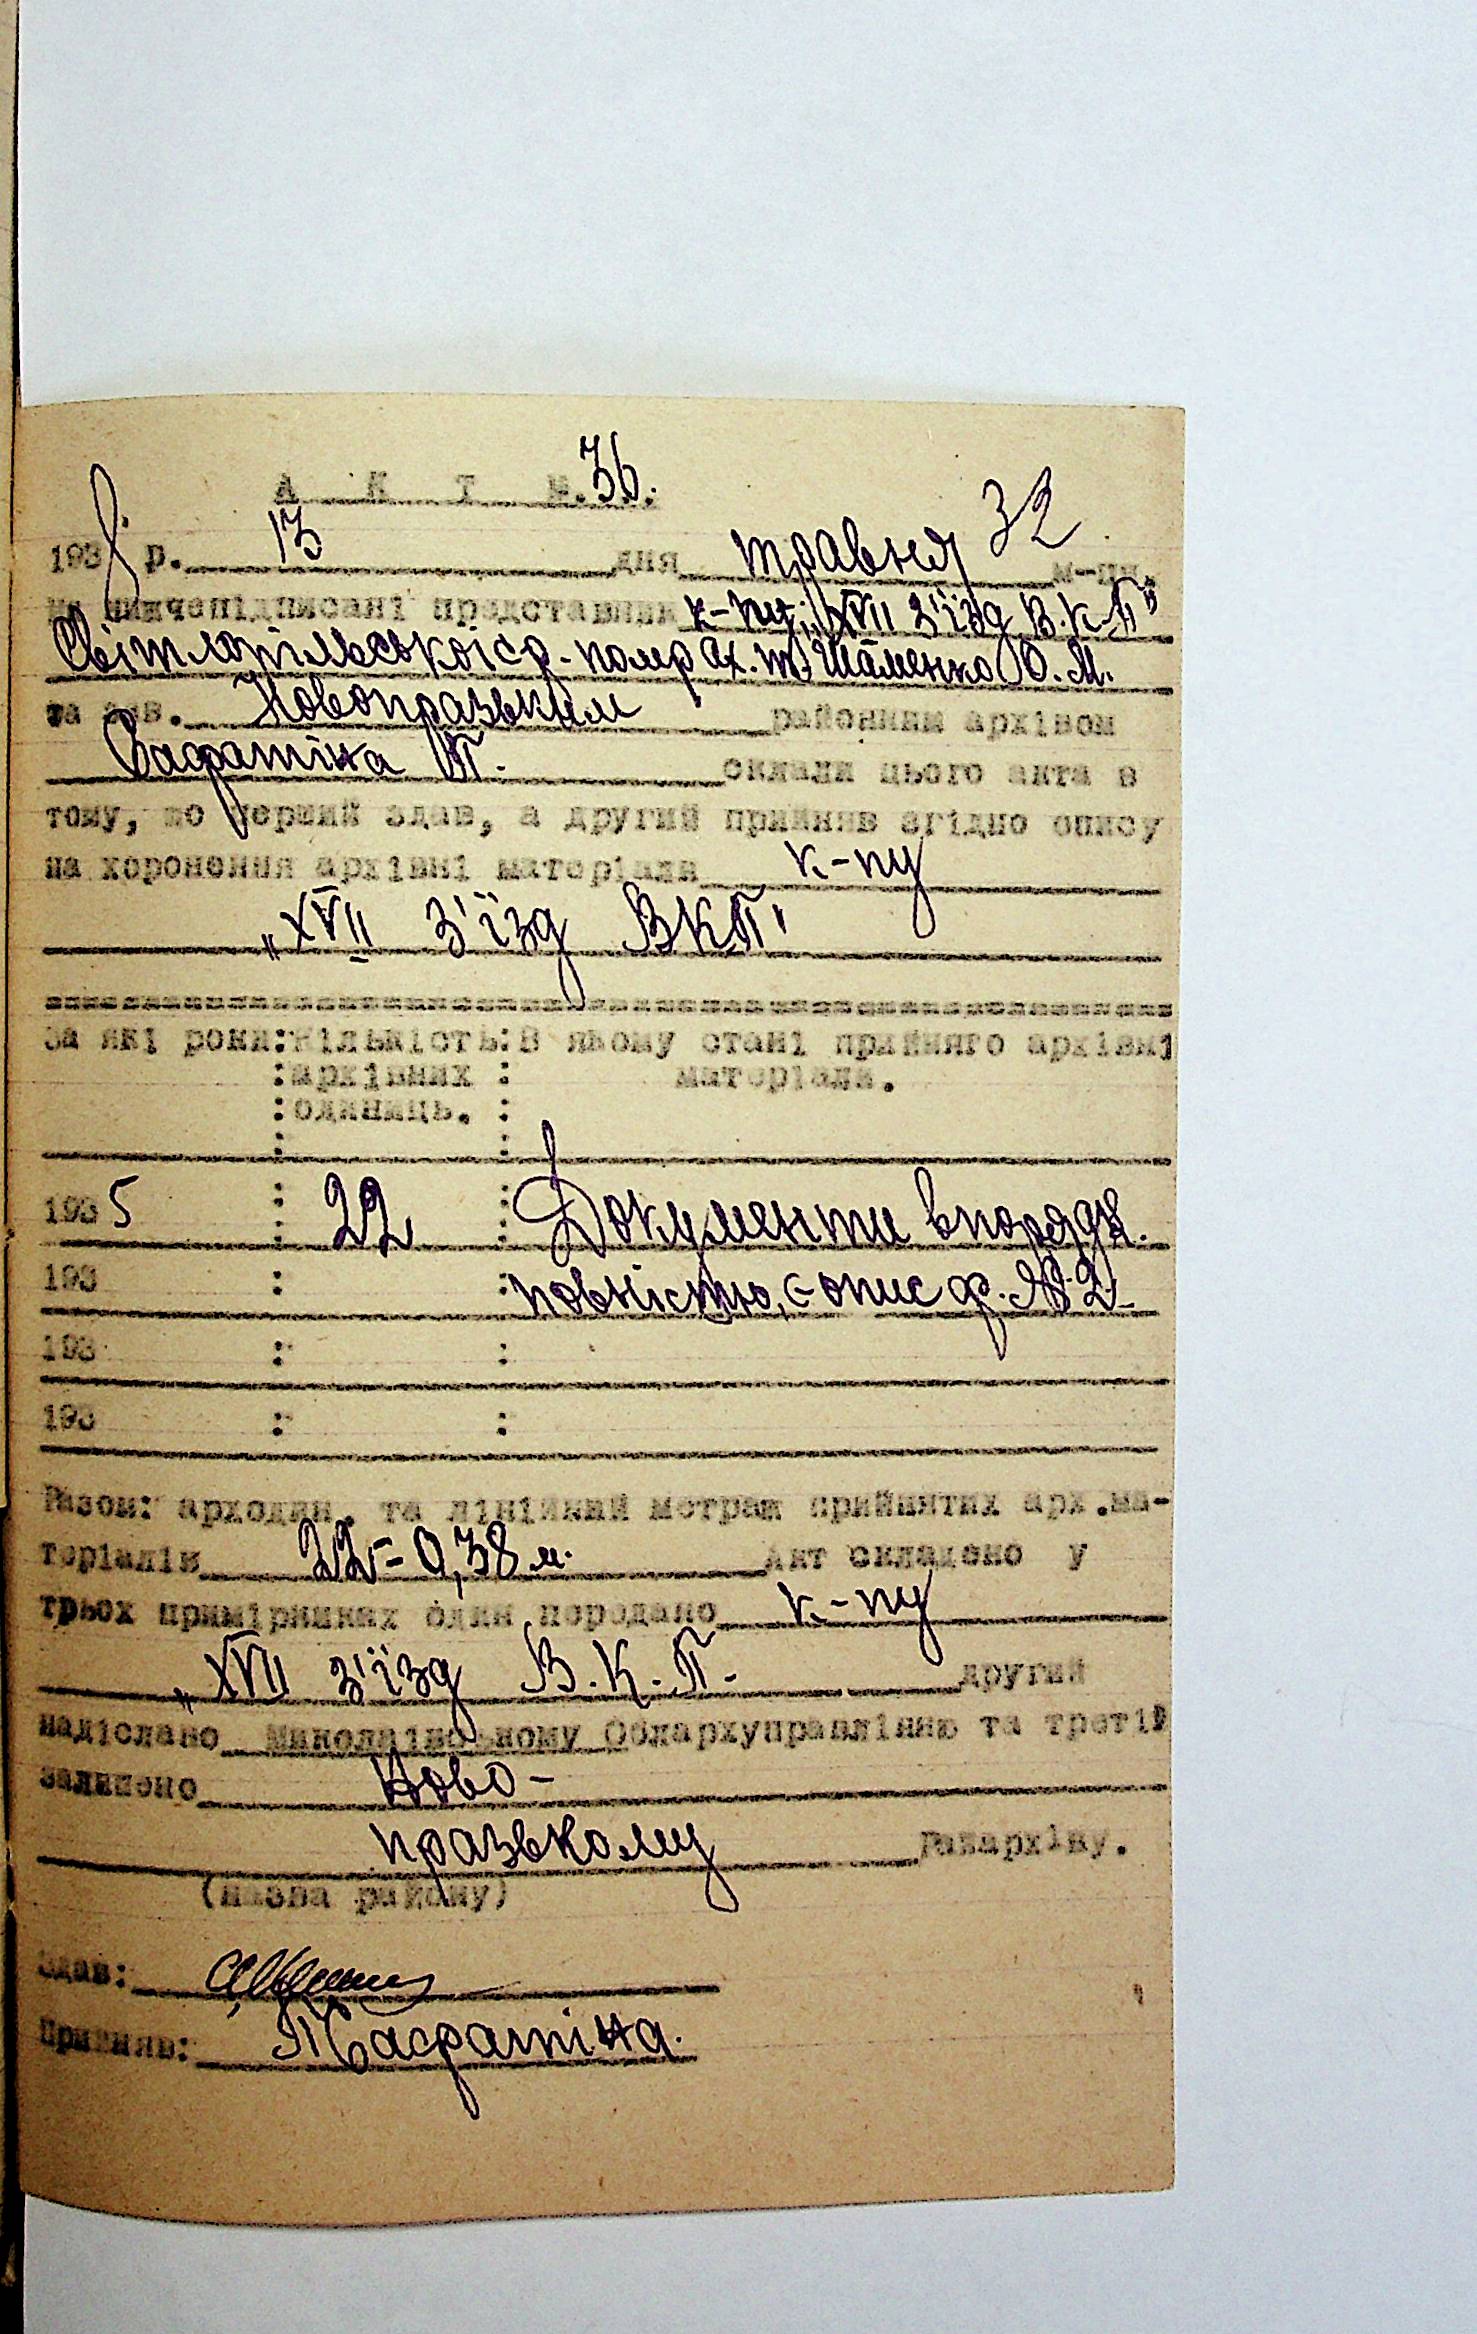 А К Т №. 36.
32
1938 р. 13 дня травня м-ця.
ми нижчепідписані представник к-пу „XVII з'їзд В.К.П"
та зав. Новопразьким районним архівом
склали цього акта в
тому, що перший здав, а другий прийняв згідно опису
на хоронення архівні матеріали к-пу
„XVII з'їзд ВКП"
За які роки: Кількість: В якому стані прийнято архівні
: архівних : матеріали.
: одиниць. :
1935 : 22 : Документи впорядк.
193 : : повністю, є опис ф. № 2
193 : :
193 : :
Разом: арходин. та лінійний метраж прийнятих арх.ма-
теріалів 22 = 0,38 м. Акт складено у
трьох примірниках один передано к-пу
„XVII з'їзд В.К.П. другий
надіслано Миколаївському Облархуправлінню та третій
залишено Ново-
празькому Райархіву.
(назва району)
Здав:
Прийняв: